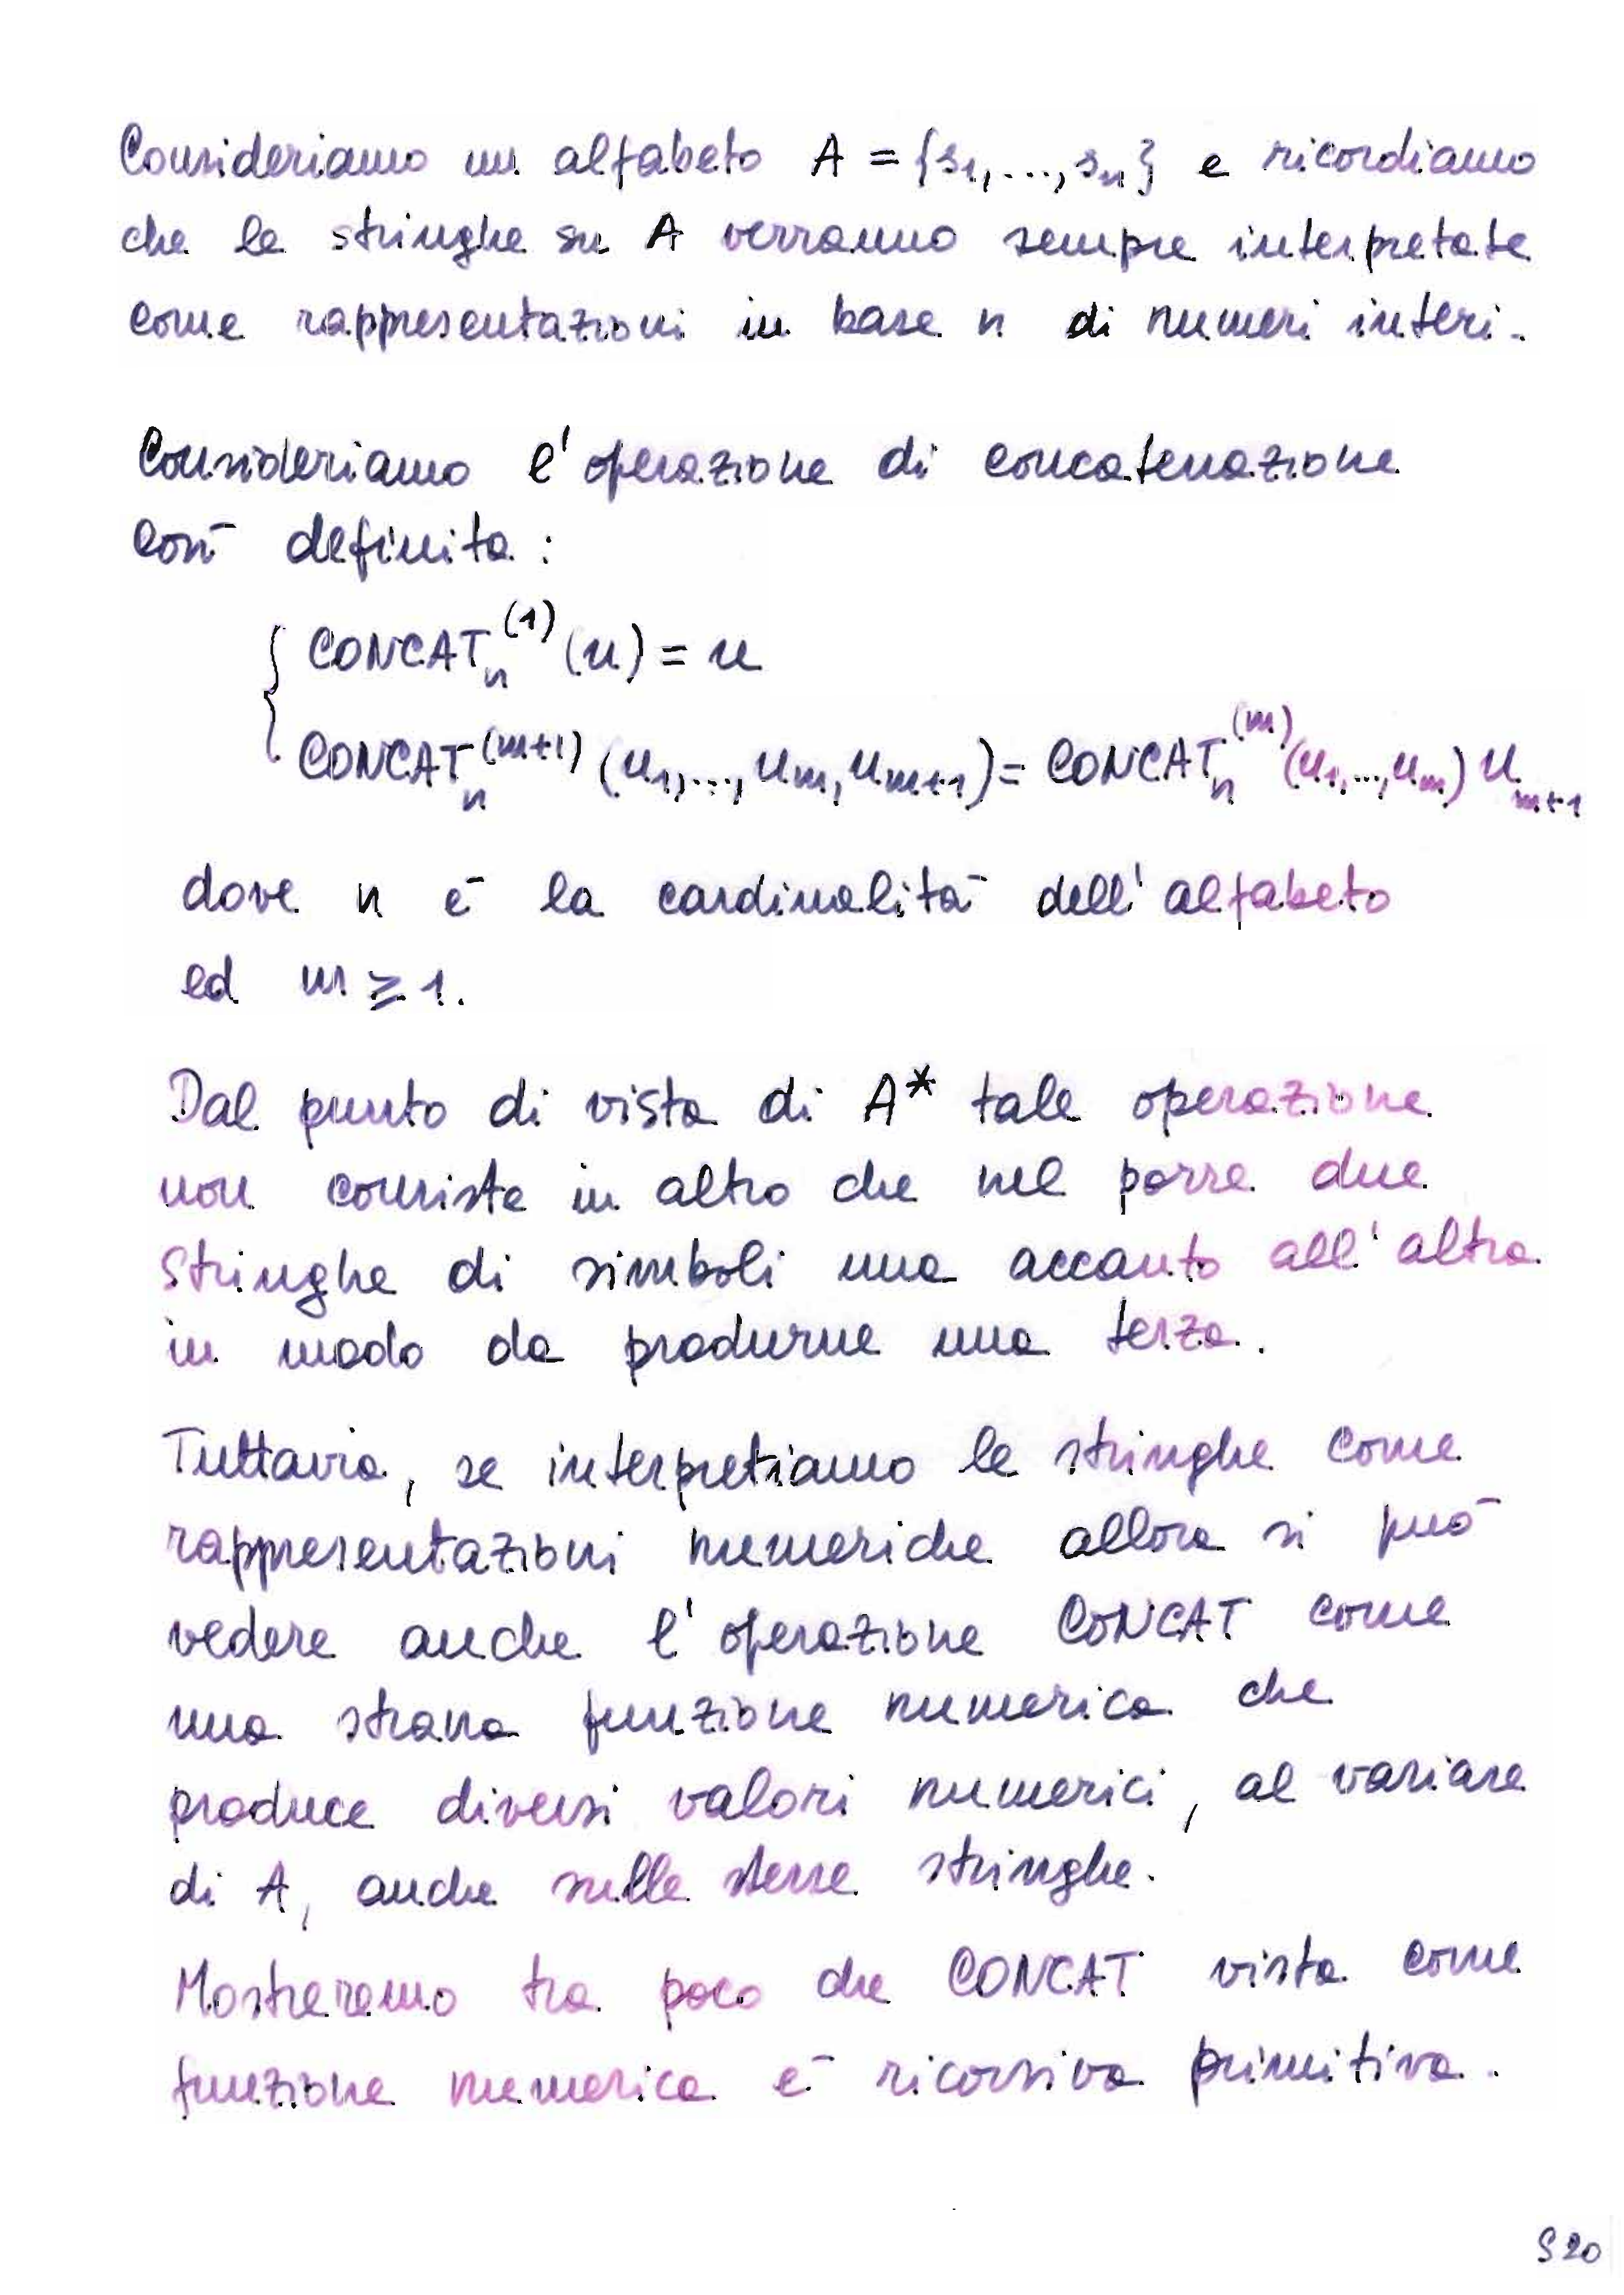 Consideriamo un alfabeto A = {s₁,...,sₙ} e ricordiamo
che le stringhe su A verranno sempre interpretate
come rappresentazioni in base n di numeri interi.
Consideriamo l'operazione di concatenazione
così definita:
CONCATₙ⁽¹⁾(u) = u
CONCATₙ⁽ᵐ⁺¹⁾(u₁,...,uₘ,uₘ₊₁) = CONCATₙ⁽ᵐ⁾(u₁,...,uₘ) uₘ₊₁
dove n è la cardinalità dell'alfabeto
ed m ≥ 1.
Dal punto di vista di A* tale operazione
non consiste in altro che nel porre due
stringhe di simboli una accanto all'altra
in modo da produrne una terza.
Tuttavia, se interpretiamo le stringhe come
rappresentazioni numeriche allora si può
vedere anche l'operazione CONCAT come
una strana funzione numerica che
produce diversi valori numerici, al variare
di A, anche sulle stesse stringhe.
Mostreremo tra poco che CONCAT vista come
funzione numerica è ricorsiva primitiva.
S20